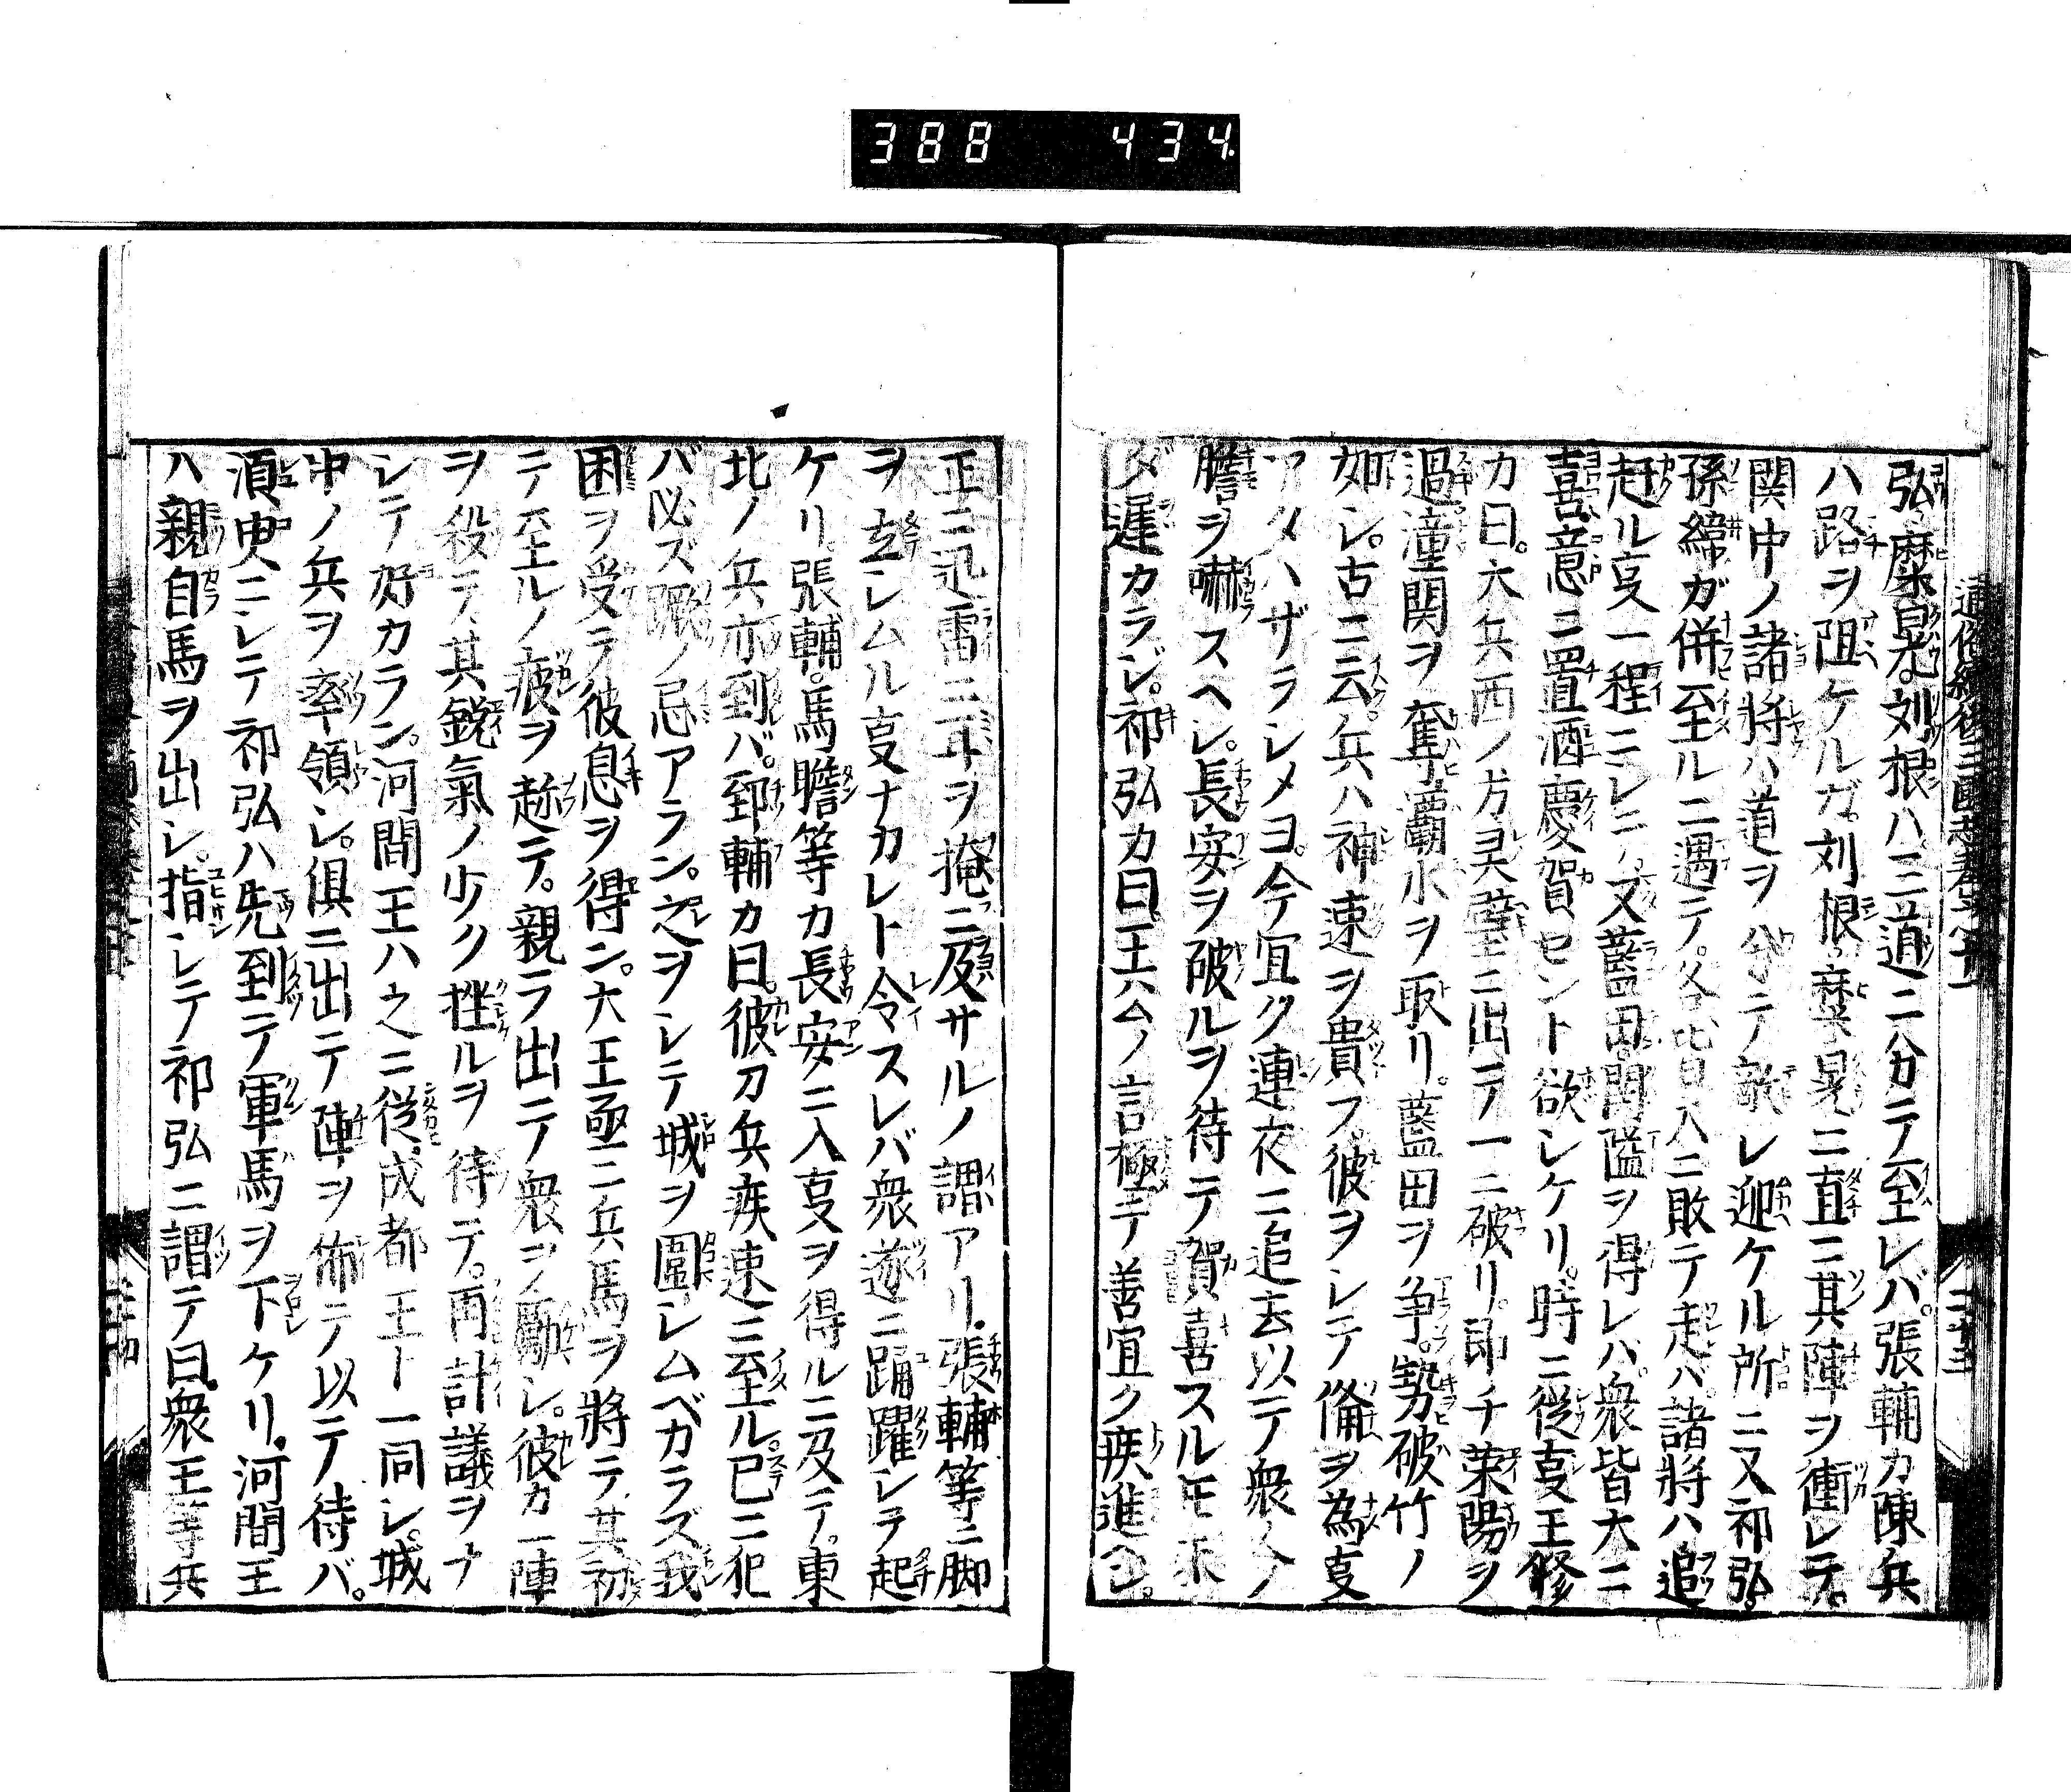 388 434
弘糜晃刘根ハ三道ニハカテ至レバ。張輔カ陳兵
ハ路ヲ阻ケルガ。刘根糜晃ニ直ニ其陣ヲ衝レテ。
関中ノ諸將ハ道ヲ分ニテ敵レ迎ケル所ニ又祁弘。
孫緯ガ併至ルニ遇テ。各皆大ニ敗テ走ハ。諸將ハ追
赶ル㕝一程ニレニ。又藍田関隘ヲ得レハ。衆皆大ニ
喜意ニ置酒慶賀セント欲レケリ。時ニ從㕝王修
カ曰。大兵西ノ方灵璧ニ出テ一ニ破リ。即チ荣陽ヲ
過潼関ヲ奪。灞水ヲ取リ。藍田ヲ争。勢破竹ノ
如シ。古ニ云。兵ハ神速ヲ貴フ。彼ヲシテ備ヲ為㕝
アタハザラシメヨ。今宜ク連夜ニ追去以テ衆人ノ
膽ヲ嚇スヘシ。長安ヲ破ルヲ待テ賀喜スルモ未
ダ遅カラジ。祁弘カ曰王公ノ言極テ善宜ク疾進ベシ。
正ニ迅雷ニ耳ヲ掩ニ及サルノ謂アリ。張輔等ニ脚
ヲ立シムル㕝ナカレト令スレバ衆遂ニ踊躍シテ起
ケリ。張輔。馬瞻等カ長安ニ入㕝ヲ得ルニ及テ。東
北ノ兵亦到バ。郅輔カ曰。彼カ兵疾速ニ至ル。已ニ犯
バ必ズ蹶ノ忌アラン。之ヲシテ城ヲ圍シムベカラズ我
困ヲ受テ彼息ヲ得ン。大王亟ニ兵馬ヲ將テ其初
テ至ルノ疲ヲ趂テ。親ラ出テ衆ヲ勵シ。彼カ一陣
ヲ殺テ其鋭氣ノ少ク挫ルヲ待テ。再計議ヲナ
シテ好カラン。河間王ハ之ニ從。成都王ト一同シ。城
中ノ兵ヲ率領シ。俱ニ出テ陣ヲ佈テ以テ待バ。
湏臾ニシテ祁弘ハ先到テ軍馬ヲ下ケリ。河間王
ハ親自馬ヲ出シ。指シテ祁弘ニ謂テ曰。衆王等兵